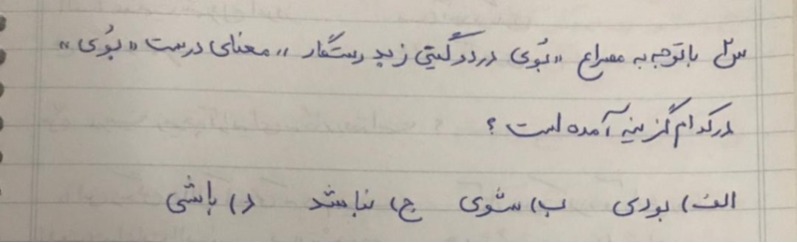 س۲ باتوجه به مصراع «بُوی در دو گیتی ز بد رستگار» معنای درست «بُوی»
در کدام گزینه آمده است؟
الف) بودی ب) شوی ج) نباشد د) باشی